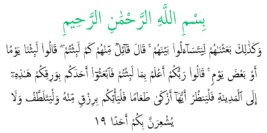 بِسْمِ اللَّهِ الرَّحْمَٰنِ الرَّحِيمِ
وَكَذَٰلِكَ بَعَثْنَاهُمْ لِيَتَسَاءَلُوا بَيْنَهُمْ ۚ قَالَ قَائِلٌ مِنْهُمْ كَمْ لَبِثْتُمْ ۖ قَالُوا لَبِثْنَا يَوْمًا
أَوْ بَعْضَ يَوْمٍ ۚ قَالُوا رَبُّكُمْ أَعْلَمُ بِمَا لَبِثْتُمْ فَابْعَثُوا أَحَدَكُمْ بِوَرِقِكُمْ هَٰذِهِ
إِلَى الْمَدِينَةِ فَلْيَنْظُرْ أَيُّهَا أَزْكَىٰ طَعَامًا فَلْيَأْتِكُمْ بِرِزْقٍ مِنْهُ وَلْيَتَلَطَّفْ وَلَا
يُشْعِرَنَّ بِكُمْ أَحَدًا ١٩